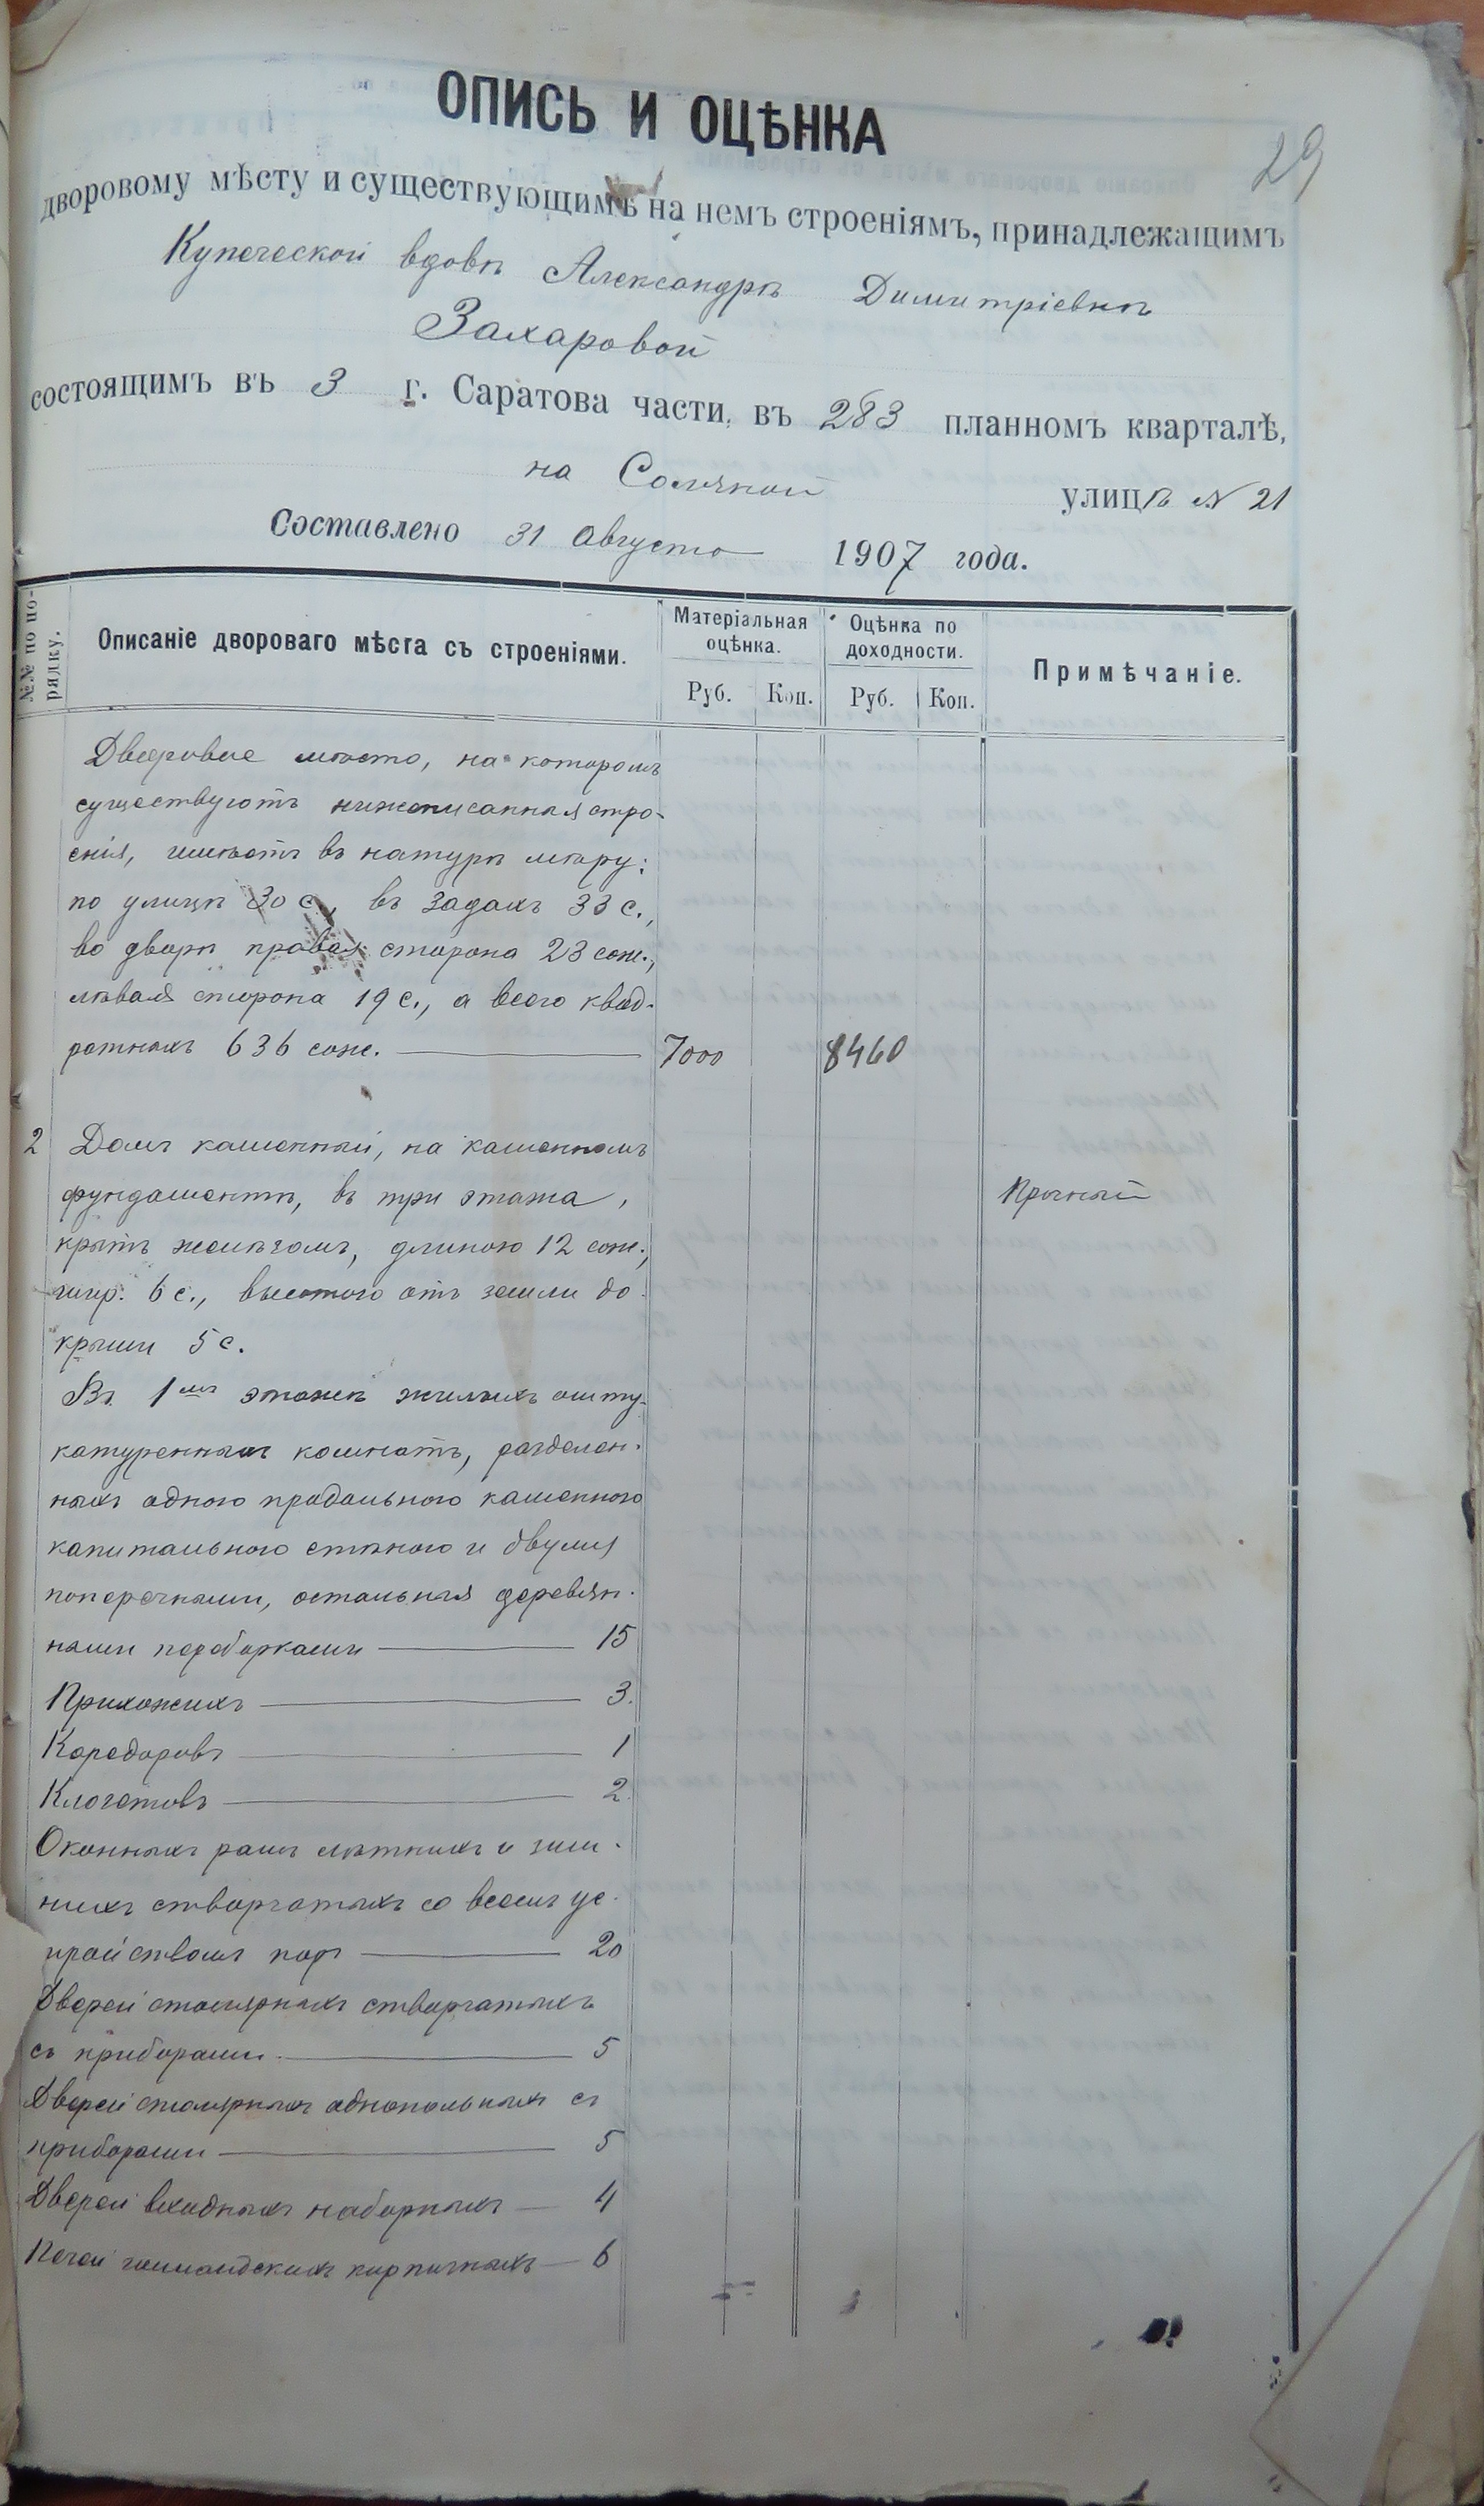 29
ОПИСЬ И ОЦѢНКА
дворовому мѣсту и существующимъ на немъ строеніямъ, принадлежащимъ
Купеческой вдовѣ Александрѣ Димитріевнѣ
Захаровой
состоящимъ въ 3 г. Саратова части, въ 283 планномъ кварталѣ,
на Соляной улицѣ № 21
Составлено 31 Августа 1907 года.
№№ по по-
рядку.
Описаніе двороваго мѣста съ строеніями.
Матеріальная
оцѣнка.
Оцѣнка по
доходности.
Примѣчаніе.
Руб. Коп. Руб. Коп.
Дворовое мѣсто, на которомъ
существуютъ нижеписанныя стро-
енія, имѣетъ въ натурѣ мѣру:
по улицѣ 30 с., въ задахъ 33 с.,
во дворѣ правая сторона 23 саж.,
лѣвая сторона 19 с., а всего квад-
ратныхъ 636 саж. 7000 8460
2 Домъ каменный, на каменномъ
фундаментѣ, въ три этажа,
крытъ желѣзомъ, длиною 12 саж.,
шир. 6 с., высотою отъ земли до
крыши 5 с.
Въ 1мъ этажѣ жилыхъ ошту-
катуренныхъ комнатъ, раздѣлен-
ныхъ одною продольною каменною
капитальною стѣною и двумя
поперечными, остальныя деревян-
ными переборками 15
Прихожихъ 3.
Коредоровъ 1
Клозетовъ 2
Оконныхъ рамъ лѣтнихъ и зим-
нихъ створчатыхъ со всемъ ус-
тройствомъ паръ 20
Дверей столярныхъ створчатыхъ
съ приборами 5
Дверей столярныхъ однопольныхъ съ
приборами 5
Дверей входныхъ наборныхъ 4
Печей голландскихъ кирпичныхъ 6